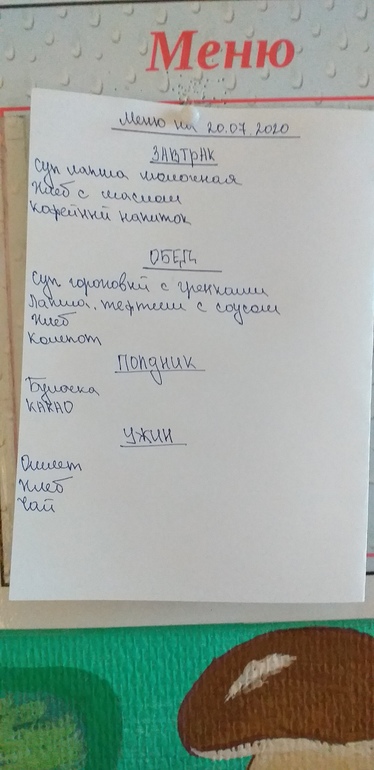 Меню
Меню на 20.07.2020
ЗАВТРАК
Суп лапша молочная
Хлеб с маслом
Кофейный напиток
ОБЕД
Суп гороховый с гренками
Лапша, тефтели с соусом
Хлеб
Компот
Полдник
Булочка
КАКАО
УЖИН
Омлет
Хлеб
Чай